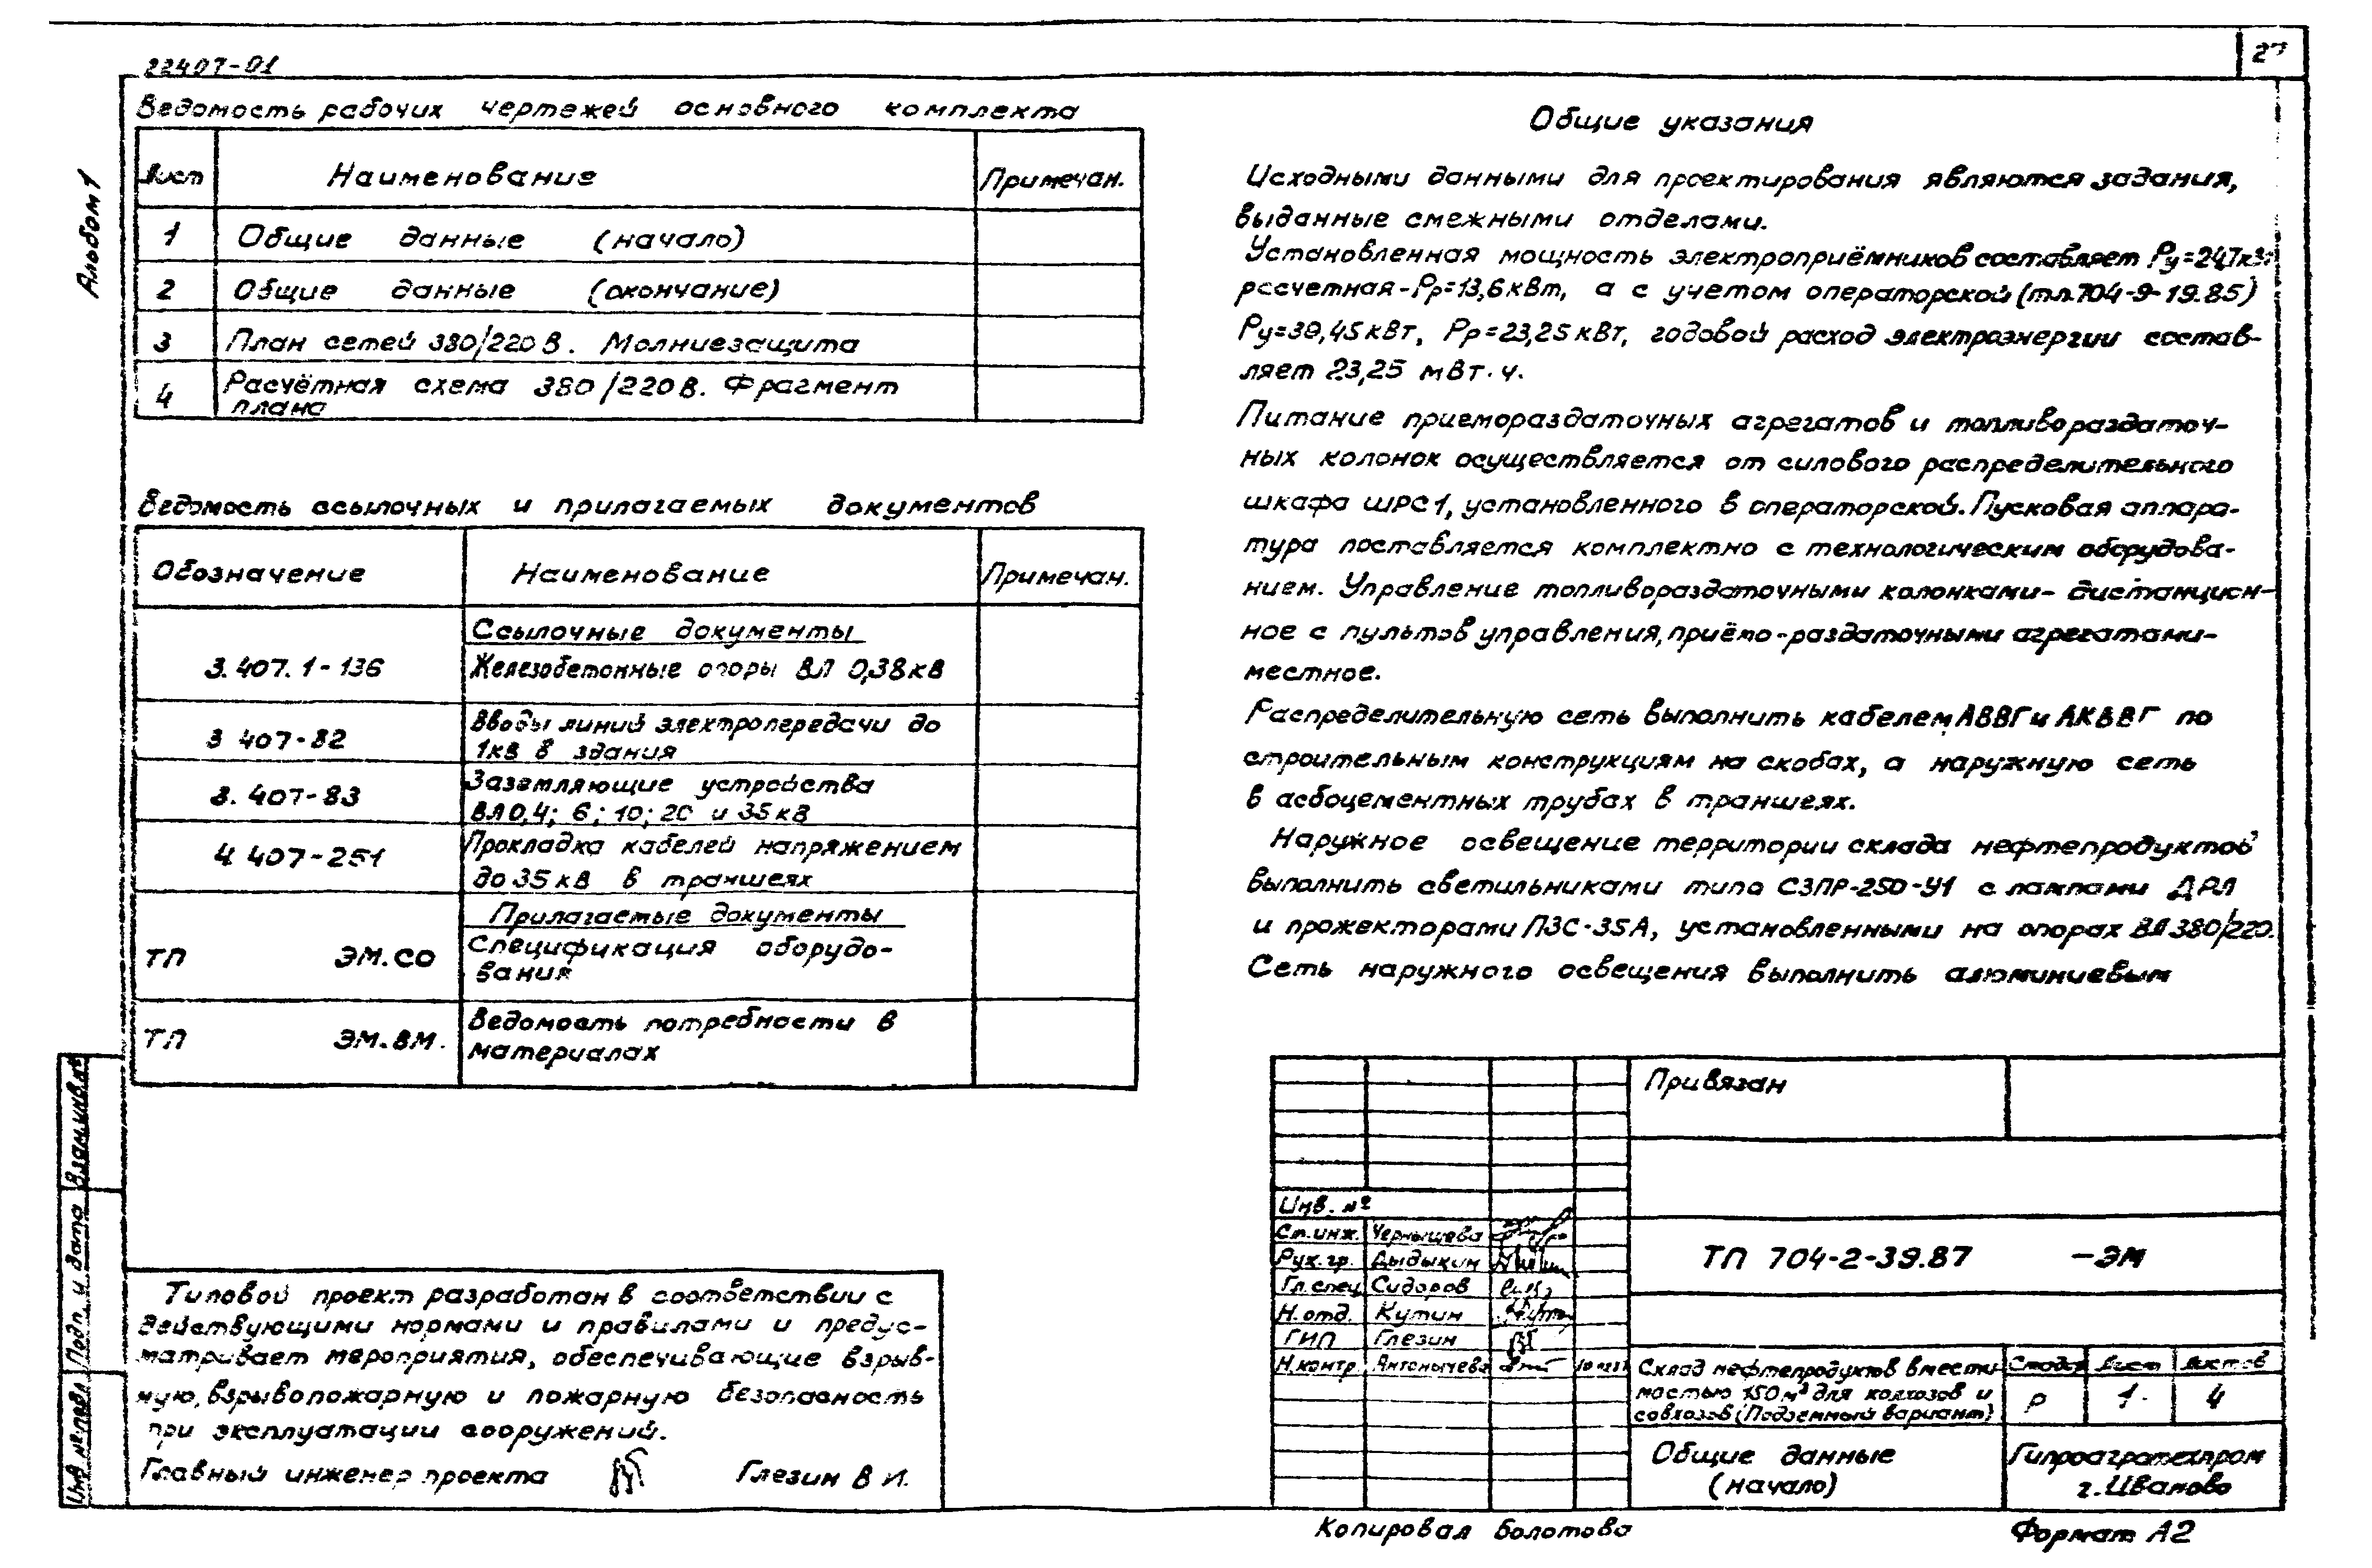 22407-01
27
Альбом 1
Ведомость рабочих чертежей основного комплекта
Лист Наименование Примечан.
1 Общие данные (начало)
2 Общие данные (окончание)
3 План сетей 380/220 В. Молниезащита
4 Расчётная схема 380/220 В. Фрагмент
плана
Ведомость ссылочных и прилагаемых документов
Обозначение Наименование Примечан.
Ссылочные документы
3.407.1-136 Железобетонные опоры ВЛ 0,38кВ
3 407-82 Вводы линий электропередачи до
1кВ в здания
3.407-83 Заземляющие устройства
ВЛ 0,4; 6; 10; 20 и 35кВ
4 407-251 Прокладка кабелей напряжением
до 35кВ в траншеях
Прилагаемые документы
ТП ЭМ.СО Спецификация оборудо-
вания
ТП ЭМ.ВМ. Ведомость потребности в
материалах
Типовой проект разработан в соответствии с
действующими нормами и правилами и предус-
матривает мероприятия, обеспечивающие взрыв-
ную, взрывопожарную и пожарную безопасность
при эксплуатации сооружений.
Главный инженер проекта Глезин В И.
Общие указания
Исходными данными для проектирования являются задания,
выданные смежными отделами.
Установленная мощность электроприёмников составляет Ру=24,7к
рассчетная-Рр=13,6кВт, а с учетом операторской (тп.704-9-19.85)
Ру=39,45кВт, Рр=23,25кВт, годовой расход электроэнергии состав-
ляет 23,25 мВт.ч.
Питание приемораздаточных агрегатов и топливораздаточ-
ных колонок осуществляется от силового распределительного
шкафа ШРС1, установленного в операторской. Пусковая аппара-
тура поставляется комплектно с технологическим оборудова-
нием. Управление топливораздаточными колонками- дистанцион-
ное с пультов управления, приёмо-раздаточными агрегатами-
местное.
Распределительную сеть выполнить кабелем АВВГ и АКВВГ по
строительным конструкциям на скобах, а наружную сеть
в асбоцементных трубах в траншеях.
Наружное освещение территории склада нефтепродуктов
выполнить светильниками типа СЗПР-250-У1 с лампами ДРЛ
и прожекторами ПЗС-35А, установленными на опорах ВЛ 380/220.
Сеть наружного освещения выполнить алюминиевым
Привязан
Инв. №
Ст.инж. Чернышева
Рук.гр. Дыдыкин
Гл.спец Сидоров
Н.отд. Кутин
ГИП Глезин
Н.контр. Антонычева
ТП 704-2-39.87 -ЭМ
Склад нефтепродуктов вмести-
мостью 150м³ для колхозов и
совхозов (Подземный вариант)
Стадия Лист Листов
Р 1. 4
Общие данные
(начало)
Гипроагротехпром
г.Иваново
Копировал Болотова
Формат А2
Взам.инв.№
Подп. и дата
Инв.№ подл